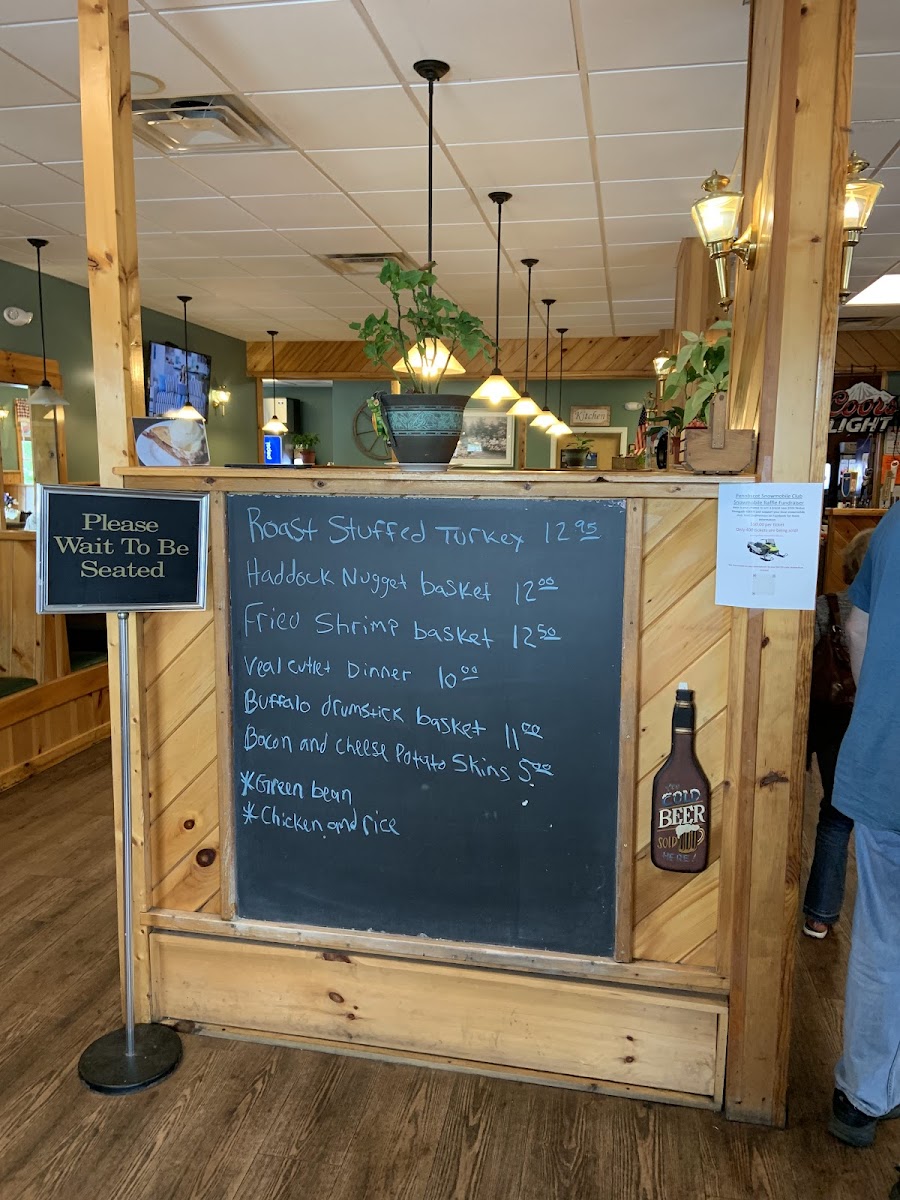 Please
Wait To Be
Seated
Roast Stuffed Turkey 12.95
Haddock Nugget basket 12.00
Fried Shrimp basket 12.50
Veal cutlet Dinner 10.00
Buffalo drumstick basket 11.00
Bacon and cheese Potato Skins 5.00
*Green bean
*Chicken and rice
COLD
BEER
SOLD
HERE!
Coors
LIGHT
Kitchen
pepsi
Snowmobile Club
Snowmobile Raffle Fundraiser